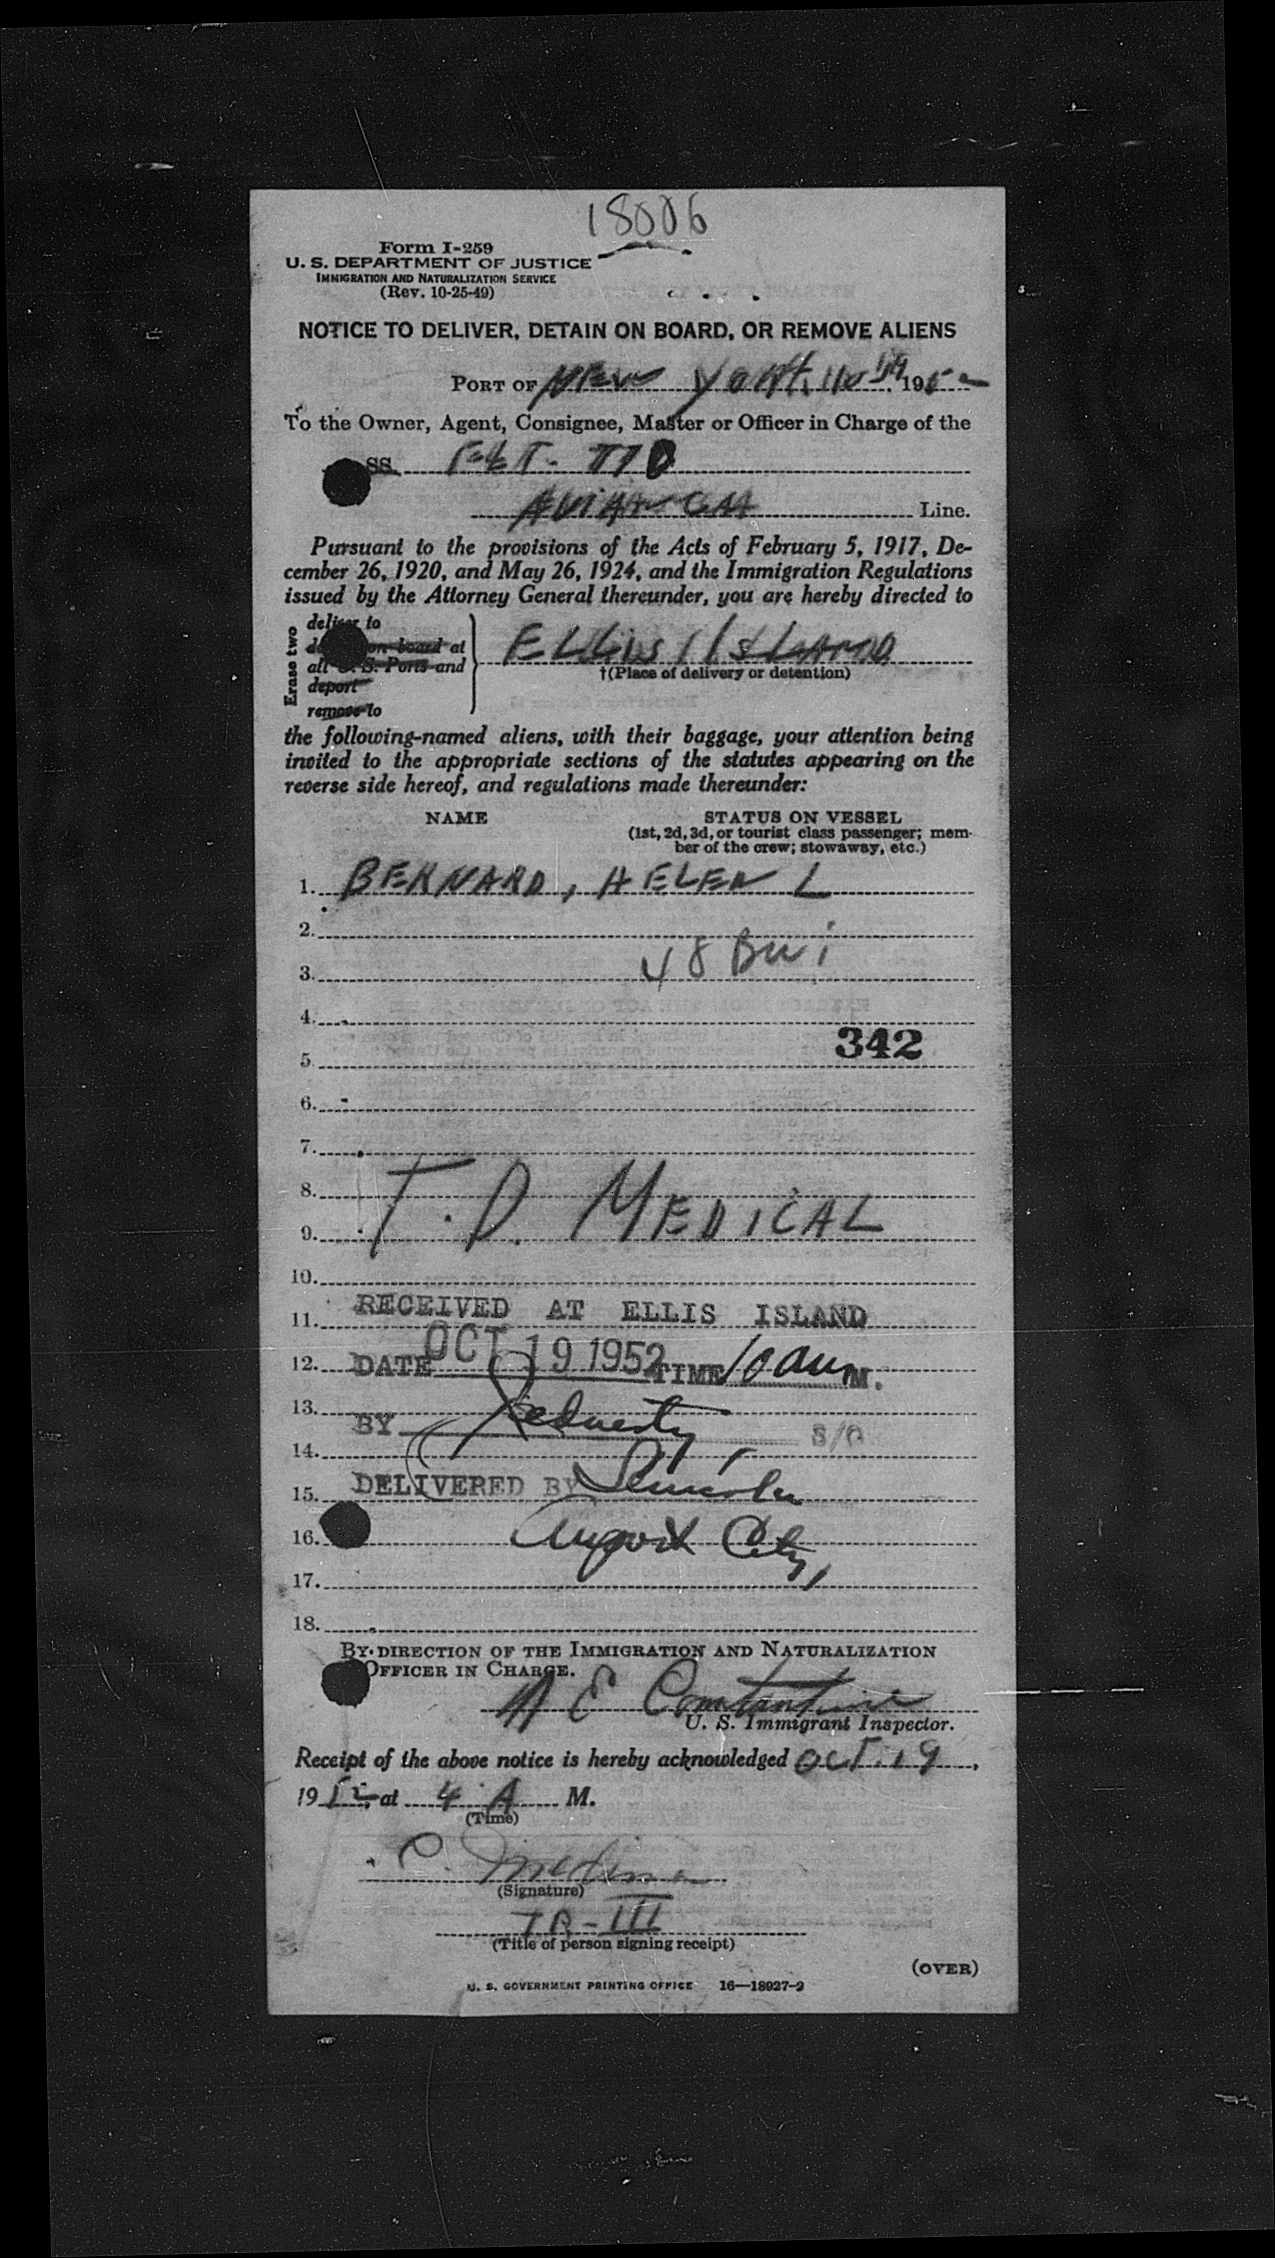 18006
Form I-259
U. S. DEPARTMENT OF JUSTICE
IMMIGRATION AND NATURALIZATION SERVICE
(Rev. 10-25-49)
NOTICE TO DELIVER, DETAIN ON BOARD, OR REMOVE ALIENS
PORT OF New York, 10/19 1952
To the Owner, Agent, Consignee, Master or Officer in Charge of the
SS. FLT. 770
AVIANCA Line.
Pursuant to the provisions of the Acts of February 5, 1917, De-
cember 26, 1920, and May 26, 1924, and the Immigration Regulations
issued by the Attorney General thereunder, you are hereby directed to
Erase two
deliver to
on board at
all U. S. Ports and
deport
remove to
ELLIS ISLAND
†(Place of delivery or detention)
the following-named aliens, with their baggage, your attention being
invited to the appropriate sections of the statutes appearing on the
reverse side hereof, and regulations made thereunder:
NAME STATUS ON VESSEL
(1st, 2d, 3d, or tourist class passenger; mem-
ber of the crew; stowaway, etc.)
1. BERNARD, HELEN L
2.
3. 48 BWI
4.
342
5.
6.
7.
8.
9. T.D. MEDICAL
10.
11. RECEIVED AT ELLIS ISLAND
12. DATE OCT 19 1952 TIME 10 am M.
13.
BY S/O
14.
15. DELIVERED BY Lincoln
16. Airport City,
17.
18.
BY DIRECTION OF THE IMMIGRATION AND NATURALIZATION
OFFICER IN CHARGE.
N E Constantine
U. S. Immigrant Inspector.
Receipt of the above notice is hereby acknowledged OCT. 19,
1952, at 4 A M.
(Time)
C. Medina
(Signature)
TR-III
(Title of person signing receipt)
(OVER)
U. S. GOVERNMENT PRINTING OFFICE 16—18927-2